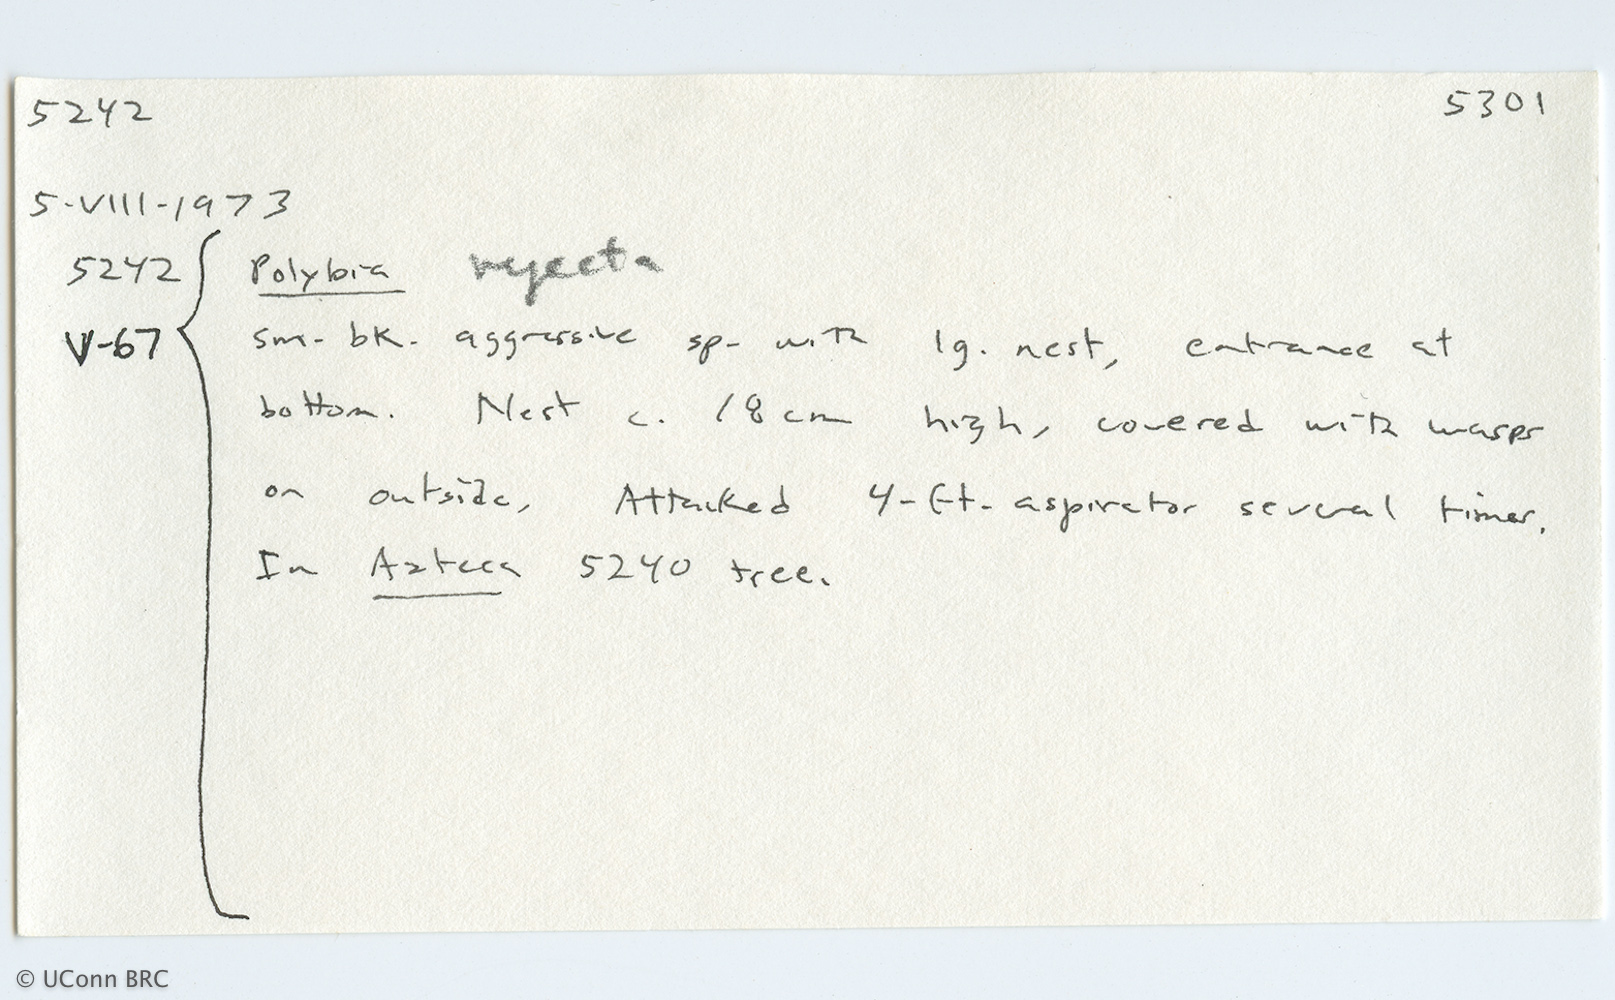 5242 5301
5-VIII-1973
5242 Polybia rejecta
V-67 sm. bk. aggressive sp. with lg. nest, entrance at
bottom. Nest c. 18 cm high, covered with wasps
on outside. Attacked 4-ft. aspirator several times.
In Azteca 5240 tree.
© UConn BRC